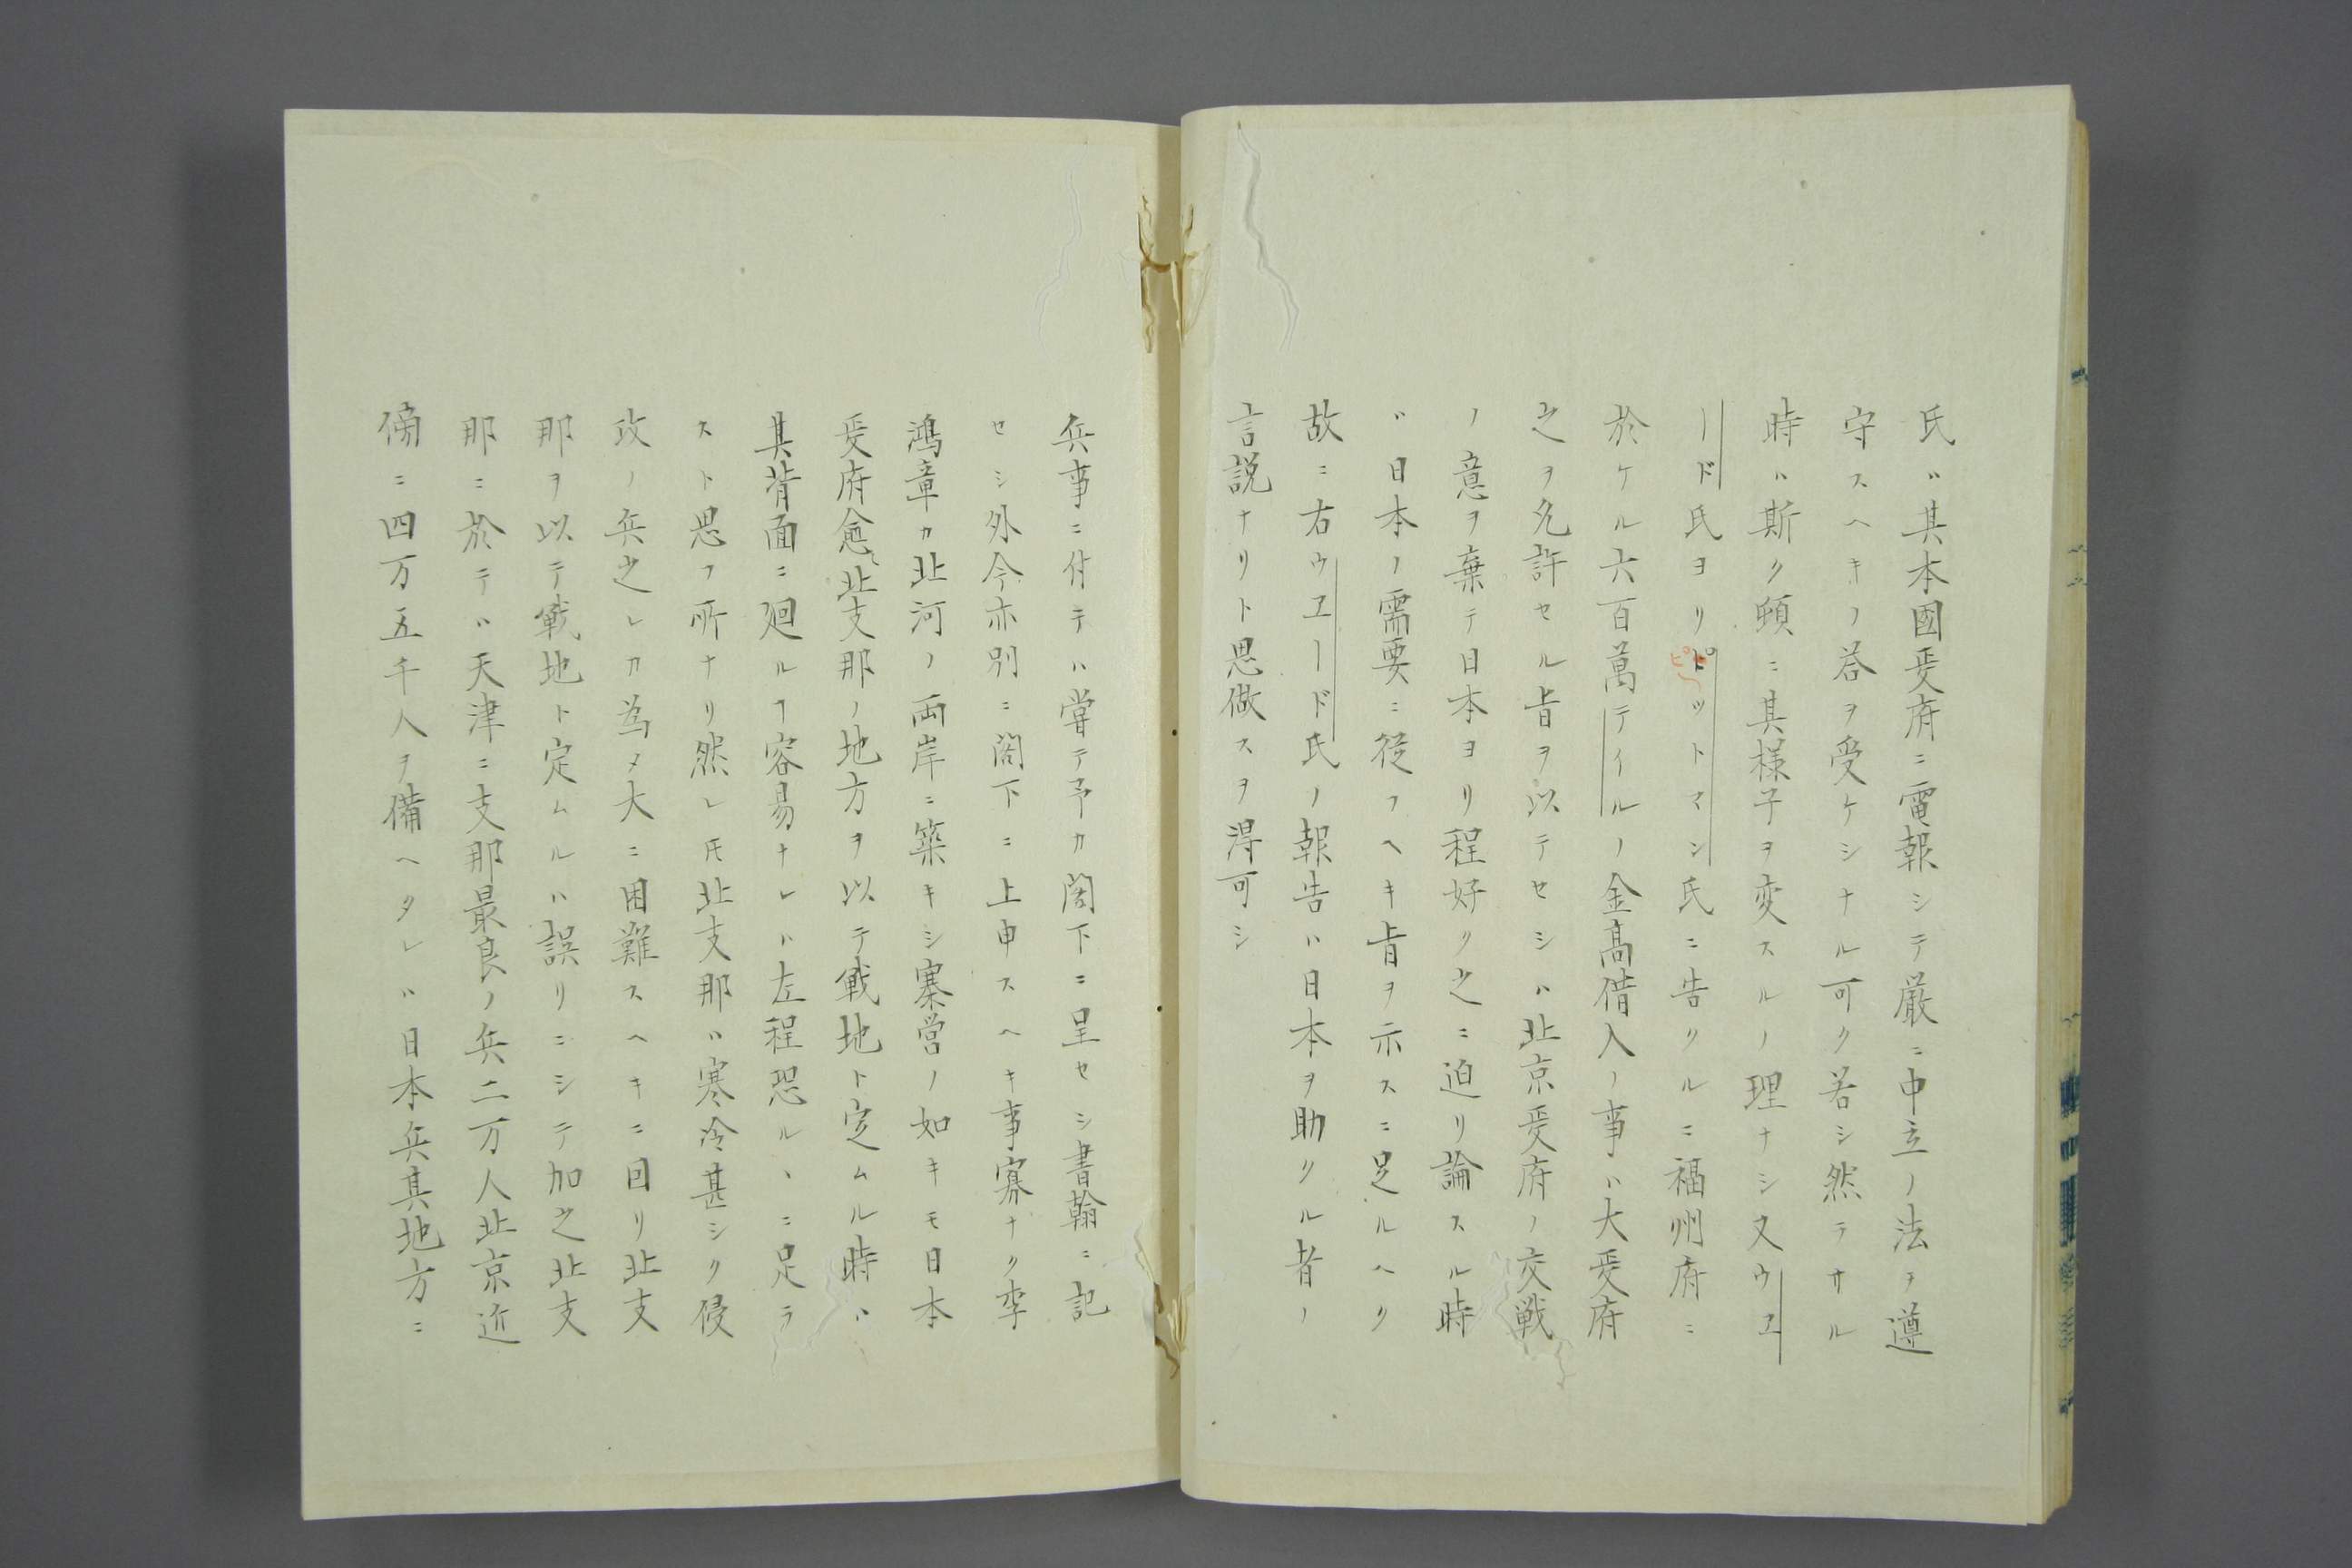 氏ハ其本國政府ニ電報シテ厳ニ中立ノ法ヲ遵
守スヘキノ答ヲ受ケシナル可ク若シ然テサル
時ハ斯ク頓ニ其様子ヲ変スルノ理ナシ又ウエ
ード氏ヨリピットマン氏ニ告クルニ福州府ニ
於ケル六百萬テイルノ金高借入ノ事ハ大政府
之ヲ允許セル旨ヲ以テセシハ北京政府ノ交戦
ノ意ヲ棄テ日本ヨリ程好ク之ニ迫リ論スル時
ハ日本ノ需要ニ従フヘキ旨ヲ示スニ足ルヘク
故ニ右ウエード氏ノ報告ハ日本ヲ助クル者ノ
言説ナリト思做スヲ得可シ
兵事ニ付テハ嘗テ予カ閣下ニ呈セシ書翰ニ記
セシ外今亦別ニ閣下ニ上申スヘキ事寡ナク李
鴻章カ北河ノ両岸ニ築キシ寨営ノ如キモ日本
政府愈〻北支那ノ地方ヲ以テ戦地ト定ムル時ハ
其背面ニ廻ルヿ容易ナレハ左程恐ルヽニ足ラ
スト思フ所ナリ然レ𪜈北支那ハ寒冷甚シク侵
攻ノ兵之レカ為メ大ニ困難スヘキニ因リ北支
那ヲ以テ戦地ト定ムルハ誤リニシテ加之北支
那ニ於テハ天津ニ支那最良ノ兵二万人北京近
傍ニ四万五千人ヲ備ヘタレハ日本兵其地方ニ